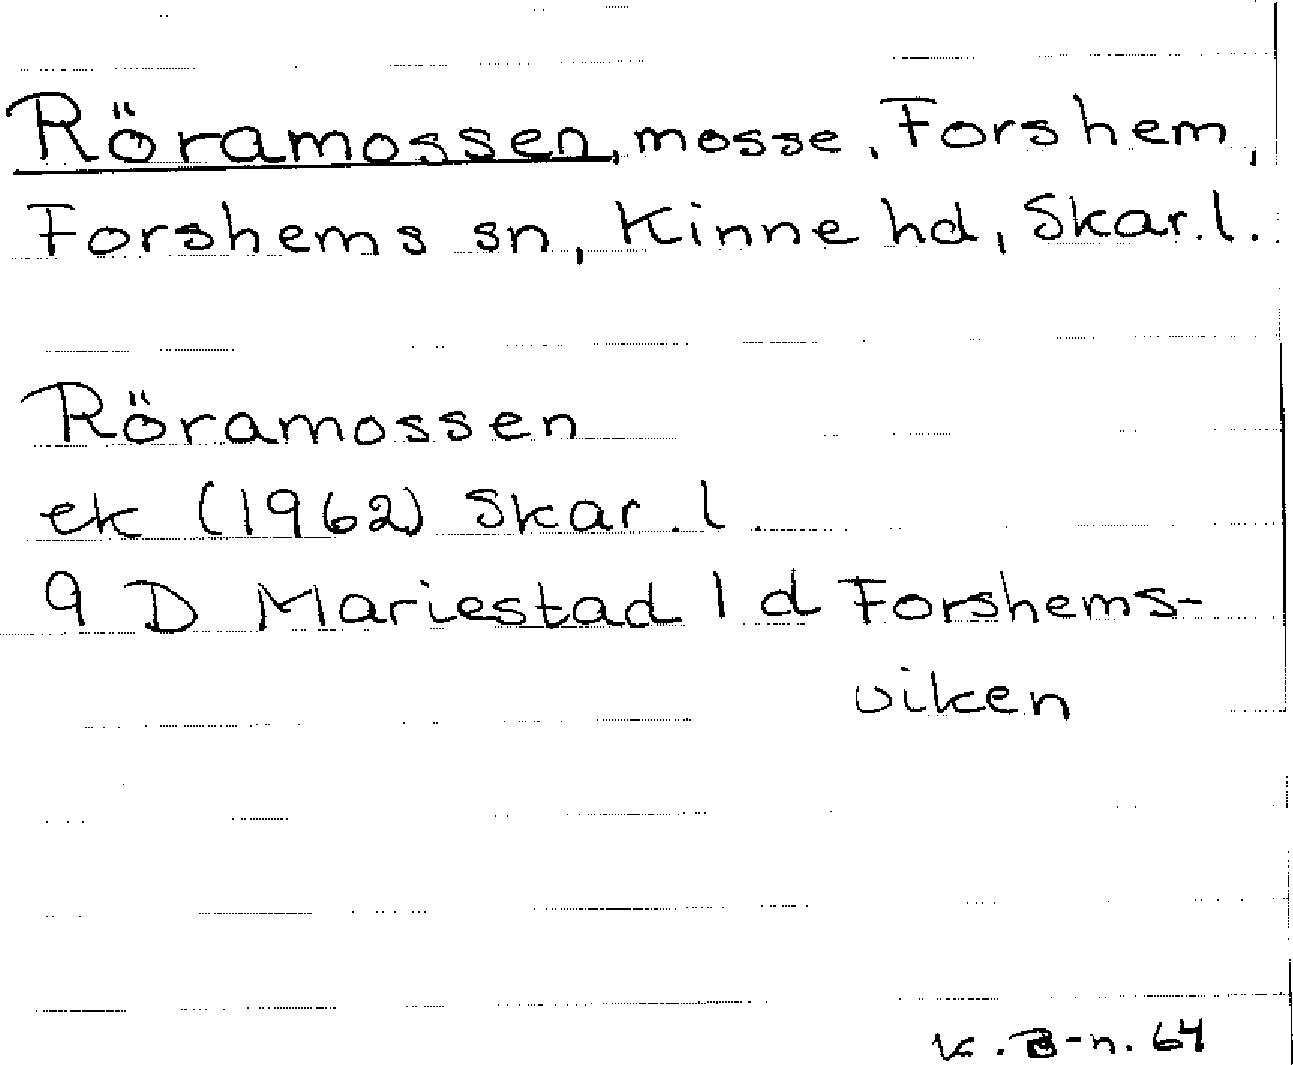 Röramossen, mosse, Forshem,
Forshems sn, Kinne hd, Skar.l.
Röramossen
ek (1962) Skar.l.
9 D Mariestad 1 d Forshems-
viken
K.B-n. 64